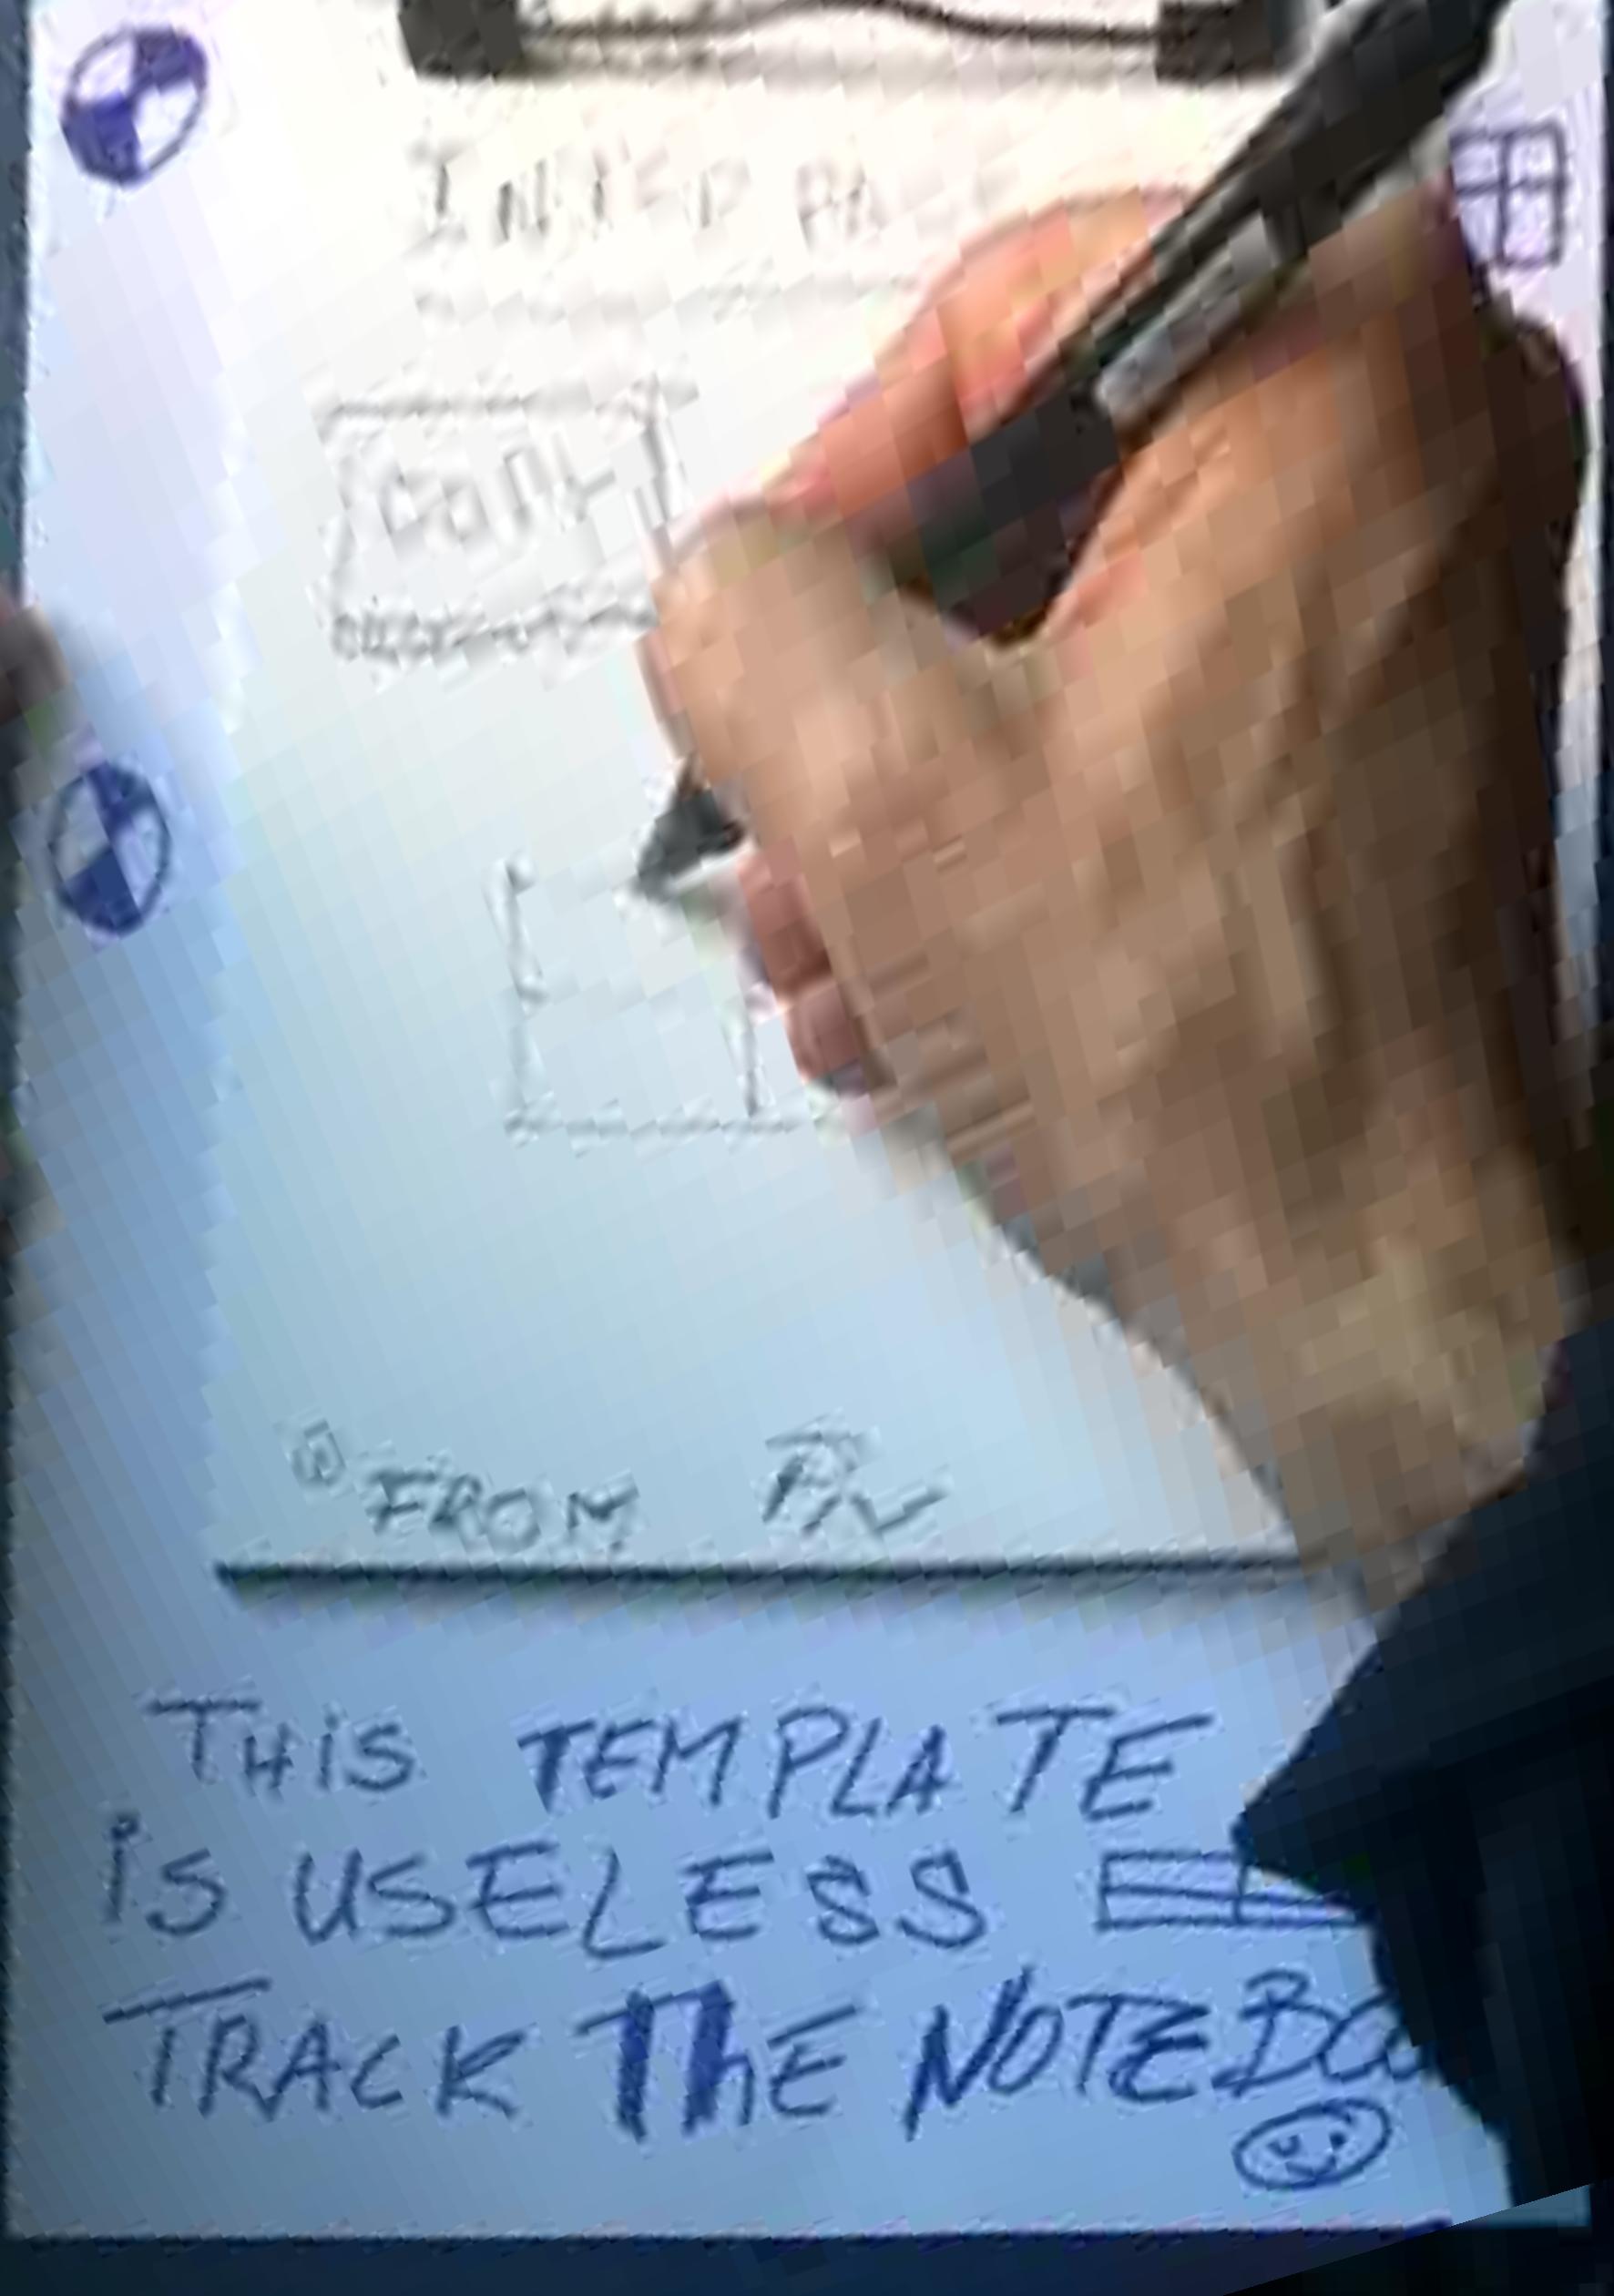 COPY
FROM
THIS TEMPLATE
iS USELESS
TRACK ThE NOTEBOO